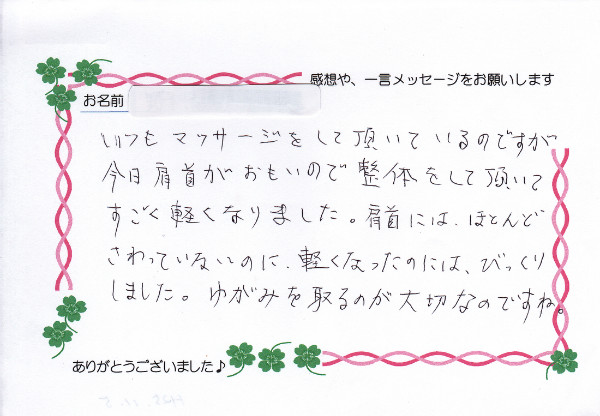 感想や、一言メッセージをお願いします
お名前
いつもマッサージをして頂いているのですが
今日肩首がおもいので整体をして頂いて
すごく軽くなりました。肩首には、ほとんど
さわっていないのに、軽くなったのには、びっくり
しました。ゆがみを取るのが大切なのですね。
ありがとうございました♪